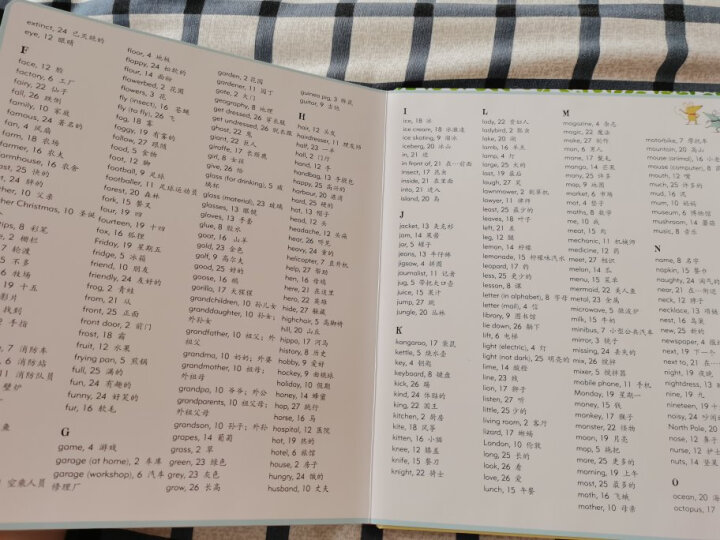 extinct, 24 已灭绝的
eye, 12 眼睛
F
face, 12 脸
factory, 6 工厂
fairy, 22 仙子
fall, 26 跌倒
family, 10 家庭
famous, 24 著名的
fan, 4 风扇
farm, 18 农场
farmer, 16 农夫
farmhouse, 16 农舍
25 快的
24 胖的
10 父亲
Father Christmas, 10 圣诞
8 彩笔
2 栅栏
7 轮渡
25 不多
16 牧场
19 十五
影片
找到
12 手指
7 消防车
6 消防站
11 消防队员
壁炉
floor, 4 地板
floppy, 24 松软的
flour, 14 面粉
flowerbed, 2 花圃
flowers, 3 花
fly (insect), 16 苍蝇
fly (to fly), 26 飞
fog, 18 雾
foggy, 19 有雾的
follow, 27 跟随
food, 5 食物
foot, 12 脚
football, 9 足球
footballer, 11 足球运动员
forest, 20 森林
fork, 15 餐叉
four, 19 四
fourteen, 19 十四
fox, 16 狐狸
Friday, 19 星期五
fridge, 5 冰箱
friend, 10 朋友
friendly, 24 友好的
frog, 2 青蛙
from, 21 从
front, 25 正面
front door, 2 前门
frost, 18 霜
fruit, 12 水果
frying pan, 5 煎锅
full, 25 满的
fun, 24 有趣的
funny, 24 好笑的
fur, 16 软毛
G
game, 4 游戏
garage (at home), 2 车库
garage (workshop), 6 汽车
修理厂
空乘人员
garden, 2 花园
gardener, 11 园丁
gate, 2 大门
geography, 8 地理
get dressed, 26 穿衣服
get undressed, 26 脱衣服
ghost, 22 鬼
giant, 22 巨人
giraffe, 17 长颈鹿
girl, 8 女孩
give, 26 给
glass (for drinking), 5 玻
璃杯
glass (material), 23 玻璃
glasses, 13 眼镜
gloves, 13 手套
glue, 8 胶水
goat, 16 山羊
gold, 23 金色
golf, 9 高尔夫
good, 25 好的
goose, 16 鹅
gorilla, 17 大猩猩
grandchildren, 10 孙儿女
granddaughter, 10 孙女;
外孙女
grandfather, 10 祖父; 外
祖父
grandma, 10 奶奶; 外婆
grandmother, 10 祖母;
外祖母
grandpa, 10 爷爷; 外公
grandparents, 10 祖父母;
外祖父母
grandson, 10 孙子; 外孙
grapes, 14 葡萄
grass, 2 草
green, 23 绿色
grey, 23 灰色
grow, 26 长高
guinea pig, 3 豚鼠
guitar, 9 吉他
H
hair, 12 头发
hairdresser, 11 理发师
half, 23 一半
hall, 2 门厅
hand, 12 手
handbag, 13 手提包
happy, 25 高兴的
harbour, 20 港湾
hard, 25 硬的
hat, 13 帽子
head, 12 头
headache, 12 头痛
hear, 26 听见
heavy, 24 重的
helicopter, 7 直升机
help, 27 帮助
hen, 16 母鸡
here, 21 在这里
hero, 22 英雄
hide, 27 躲藏
highchair, 5 高脚椅
hill, 20 山丘
hippo, 17 河马
history, 8 历史
hobby, 9 爱好
hockey, 9 曲棍球
holiday, 10 假期
honey, 14 蜂蜜
hop, 27 跳行
horse, 16 马
hospital, 12 医院
hot, 19 热的
hotel, 6 旅馆
house, 2 房子
hungry, 24 饿的
husband, 10 丈夫
I
ice, 18 冰
ice cream, 18 冰激凌
ice skating, 9 溜冰
iceberg, 20 冰山
in, 21 进
in front of, 21 在…前面
insect, 17 昆虫
inside, 21 在里面
into, 21 进入
island, 20 岛
J
jacket, 13 夹克衫
jam, 14 果酱
jar, 5 罐子
jeans, 13 牛仔裤
jigsaw, 4 拼图
journalist, 11 记者
jug, 5 带把大口壶
juice, 15 果汁
jump, 27 跳
jungle, 20 丛林
K
kangaroo, 17 袋鼠
kettle, 5 烧水壶
key, 4 钥匙
keyboard, 8 键盘
kick, 26 踢
kind, 24 体贴的
king, 22 国王
kitchen, 2 厨房
kite, 18 风筝
kitten, 16 小猫
knee, 12 膝盖
knife, 15 餐刀
knight, 22 骑士
L
lady, 22 贵妇人
ladybird, 2 瓢虫
lake, 20 湖
lamb, 16 羊羔
lamp, 4 灯
large, 25 大的
last, 19 最后
laugh, 27 笑
lawnmower, 2 割草机
lawyer, 11 律师
least, 25 最少的
leaves, 18 叶子
left, 21 左
leg, 12 腿
lemon, 14 柠檬
lemonade, 15 柠檬味汽水
leopard, 17 豹
less, 25 更少的
lesson, 8 课
letter (in alphabet), 8 字母
letter (mail), 4 信
library, 9 图书馆
lie down, 26 躺下
lift, 6 电梯
light (electric), 4 灯
light (not dark), 25 明亮的
lime, 14 酸橙
line, 23 线
lion, 17 狮子
listen, 27 听
little, 25 少的
living room, 2 客厅
lizard, 17 蜥蜴
London, 10 伦敦
long, 25 长的
look, 26 看
love, 26 爱
lunch, 15 午餐
M
magazine, 4 杂志
magic, 22 魔法
make, 27 制作
man, 10 男人
mane, 17 鬃毛
mango, 14 芒果
many, 25 许多
map, 9 地图
market, 6 市场
mat, 4 垫子
math, 8 数学
me, 10 我
meat, 15 肉
mechanic, 11 机械师
medicine, 12 药
meet, 27 相识
melon, 14 瓜
menu, 15 菜单
mermaid, 22 美人鱼
metal, 23 金属
microwave, 5 微波炉
milk, 15 牛奶
minibus, 7 小型公共汽车
mirror, 3 镜子
missing, 24 丢失的
mix, 26 搅拌
mixer, 5 搅拌器
mobile phone, 11 手机
Monday, 19 星期一
money, 15 钱
monkey, 17 猴子
monster, 22 怪物
moon, 19 月亮
mop, 5 拖把
more, 25 更多的
morning, 19 上午
most, 25 最多的
moth, 16 飞蛾
mother, 10 母亲
motorbike, 7 摩托车
mountain, 20 山
mouse (animal), 16 小老
mouse (computer), 8 鼠
mouth, 12 嘴
much, 25 许多的
mud, 16 泥
mum, 10 妈妈
museum, 6 博物馆
mushroom, 14 蘑菇
music, 8 音乐
N
name, 8 名字
napkin, 15 餐巾
naughty, 24 淘气的
near, 21 在…附近
neck, 12 脖子
necklace, 13 项链
nest, 16 鸟巢
new, 25 新的
newspaper, 4 报
next, 19 下一个
next to, 21 在…
night, 19 夜晚
nightdress, 13
nine, 19 九
nineteen, 19 十
noisy, 24 吵闹
North Pole, 20
nose, 12 鼻子
nurse, 12 护士
nuts, 14 坚果
O
ocean, 20 海
octopus, 17